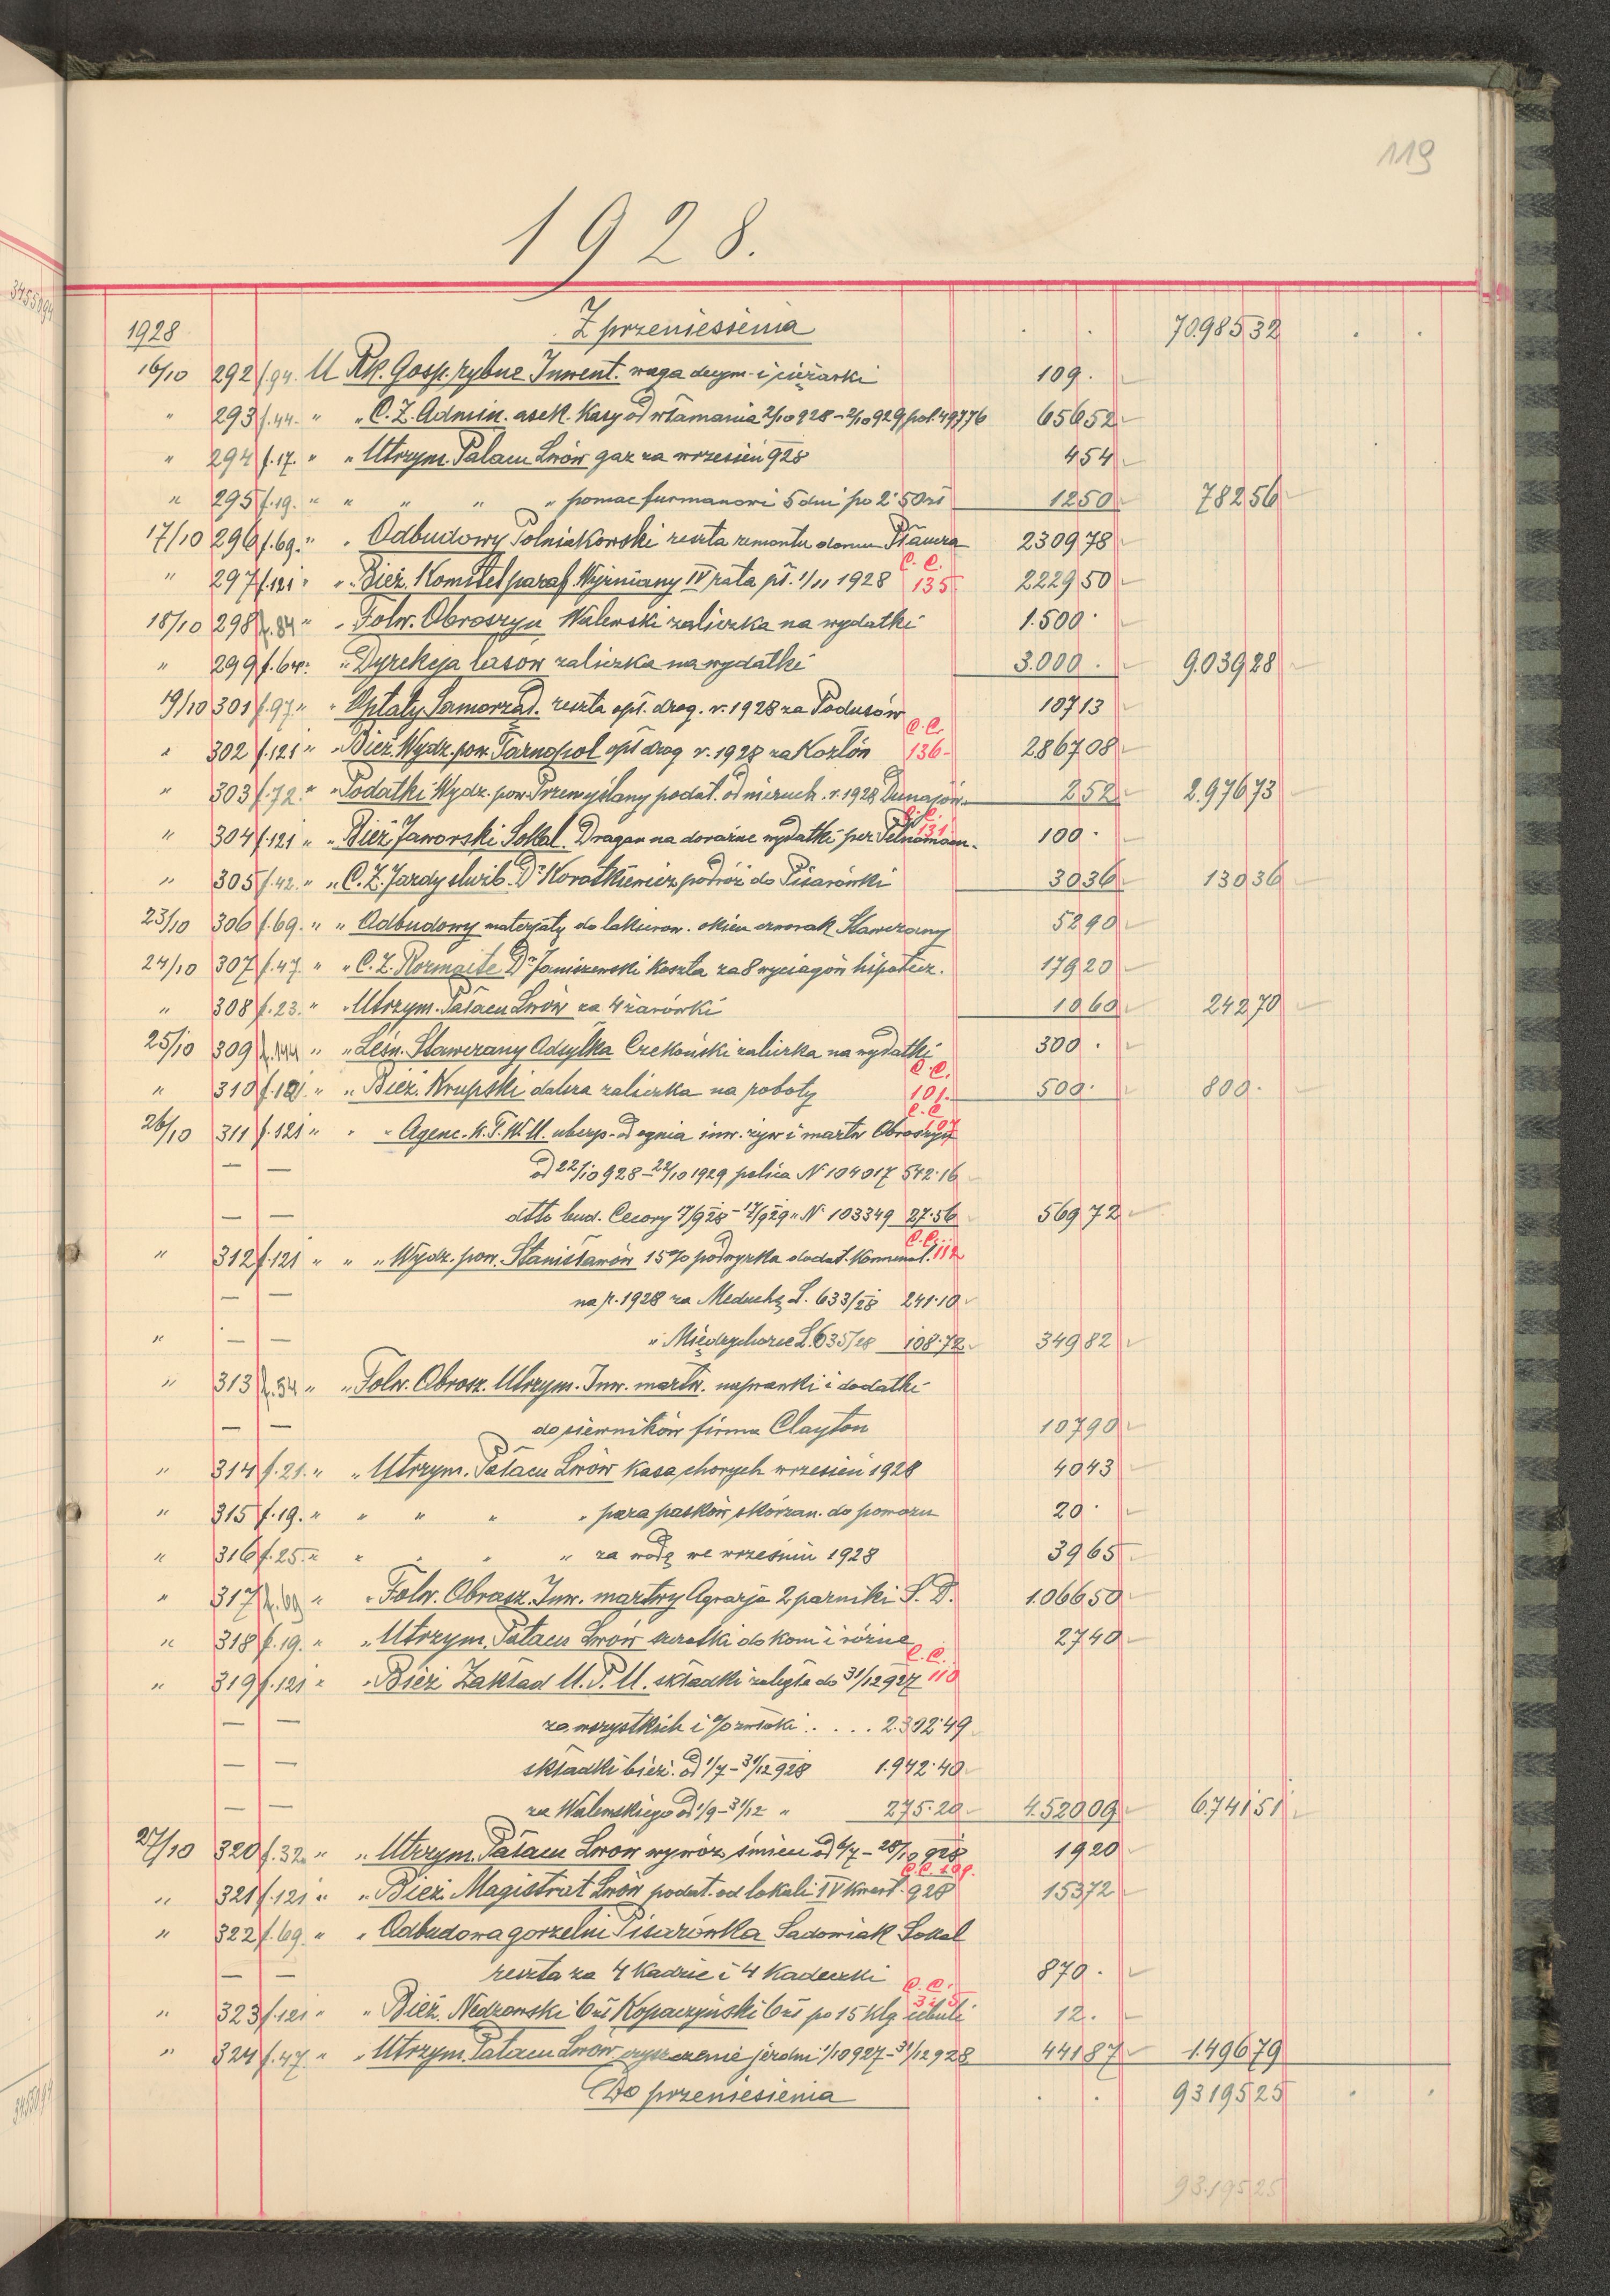 119
1928.
1928 Z przeniesienia 70.985 32
16/10 292 f.94. U Rk. Gosp. rybne Inwent. waga decym. i ciężarki 109.
" 293 f.44. " " C. Z. Admin. asek. Kasy od włamania 2/10 928 – 2/10 929 pol. 49776 656 52
" 294 f.17. " " Utrzym. Pałacu Lwów gaz za wrzesień 928 4 54
" 295 f.19. " " " " " pomoc furmanowi 5 dni po 2·50 zł 12 50 782 56
17/10 296 f.69. " " Odbudowy Polniakowski reszta remontu domu 2309 78
C. C.
" 297 f.121 " " Bież. Komitet paraf. Wyżniany IV rata pł. 1/11 1928 135 2229 50
18/10 298 f.84 " " Folw. Obroszyn Walewski zaliczka na wydatki 1.500 ·
" 299 " Dyrekcja lasów zaliczka na wydatki 3.000 · 9.039 28
19/10 301 f.97 " " Opłaty Samorząd. reszta opł. drog. r. 1928 za Podusów 107 13
C. C.
" 302 f.121 " " Bież. Wydz. pow. Tarnopol opł drog r. 1928 za Kozłów 136 2.867 08
" 303 f.72. " " Podatki Wydz. pow. Przemyślany podat. od nieruch. r. 1928 Dunajów 2 52 2.976 73
C. C.
131
" 304 f.121 " " Bież Jaworski Sokal. Dragan na doraźne wydatki per 100 ·
" 305 f.42. " " C. Z. Jazdy służb. Dr Korotkiewicz podróż do Pisarówki 30 36 130 36
23/10 306 f.69. " " Odbudowy materjały do lakierow. okien czworak Stawczany 52 90
24/10 307 f.47. " " C. Z. Rozmaite Dr Janiszewski koszta za 8 wyciągów hipotecz. 179 20
" 308 f.23. " " Utrzym. Pałacu Lwów za 4 żarówki 10 60 242 70
25/10 309 f.144 " " Leśn. Stawczany Odsyłka Czekoński zaliczka na wydatki 300 ·
C. C.
" 310 f.121. " " Bież. Krupski dalsza zaliczka na roboty 101. 500 · 800 ·
C. C.
26/10 311 f.121 " " " Agenc. K. T. W. U. ubezp. od ognia inw. żyw i martw Obroszyn 107
— — od 22/10 928 – 22/10 1929 polica N 104017 542·16
— — dtto bud. Cecory 7/9 28 – 17/9 29 " N 103349 27·56 569 72
C. C.
" 312 f.121 " " " Wydz. pow. Stanisławów 15% podwyżka dodat. Komunal. 112
— — na r. 1928 za Meduchę L. 633/28 241·10
" — — " Międzyhorce L. 635/28 108·72 349 82
" 313 f.54 " " Folw. Obrosz. Utrzym. Inw. martw. naprawki i dodatki
— — do siewników firma Clayton 107 90
" 314 f.21. " " Utrzym. Pałacu Lwów Kasa chorych wrzesień 1928 40 43
" 315 f.19. " " " " " para pasków skórzan. do powozu 20 ·
" 316 f.25. " " " " " za wodę we wrześniu 1928 39 65
" 317 f.69 " " Folw. Obrosz. Inw. martwy Agrarja 2 parniki S. D. 1.066 50
" 318 f.19. " " Utrzym. Pałacu Lwów szczotki do koni i różne 27 40
C. C.
" 319 f.121 " " Bież Zakład U. P. U. składki zaległe do 31/12 927 110
— — za wszystkich i % zwłoki . . . . 2.302·49
— — składki bież. od 1/7 – 31/12 928 1.942·40
— — za Walewskiego od 1/9 – 31/12 " 275·20 4.520 09 6.741 51
27/10 320 f.32 " " Utrzym. Pałacu Lwów wywóz śmieci od 6/7 – 28/10 928 19 20
C. C. 109.
" 321 f.121 " " Bież. Magistrat Lwów podat. od lokali IV kwart. 928 153 72
" 322 f.69 " " Odbudowa gorzelni Pisarówka Sadowiak Sokal
— — reszta za 4 Kadzie i 4 Kadeczki 870 ·
C. C.
" 323 f.121 " " Bież. Nedzowski 6 zł Kopaczyński 6 zł po 15 klg cebuli 12 ·
" 324 f.47. " " Utrzym. Pałacu Lwów czyszczenie jezdni 1/10 927 – 31/12 928 441 87 1.496 79
Do przeniesienia 93195 25
93.195 25